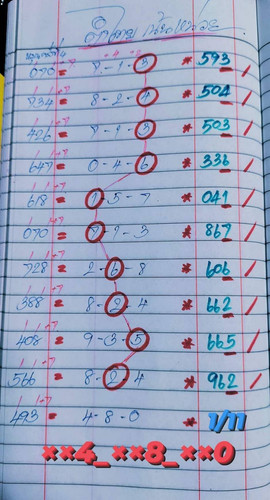 070 = 7-1-3 * 593 /
734 = 8-2-4 * 504 /
426 = 7-1-3 * 503 /
647 = 0-4-6 * 336 /
618 = 1-5-7 * 041 /
070 = 7-1-3 * 867 /
728 = 2-6-8 * 606 /
388 = 8-2-4 * 662 /
408 = 9-3-5 * 665 /
566 = 8-2-4 * 962 /
493 = 4-8-0 * 1/11
××4_××8_××0